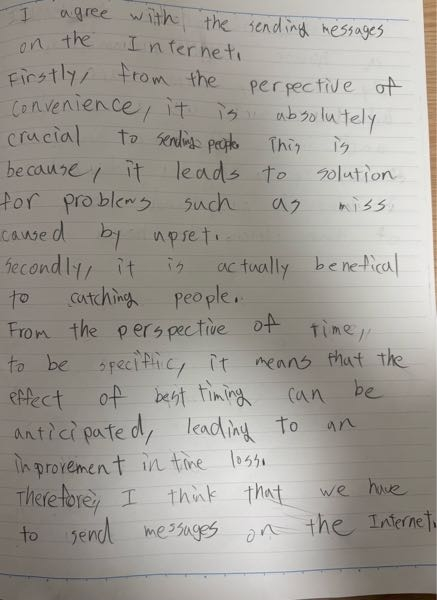 I agree with the sending messages
on the Internet.
Firstly, from the perpective of
convenience, it is absolutely
crucial to sending people. This is
because, it leads to solution
for problems such as miss
caused by upset.
Secondly, it is actually benefical
to catching people.
From the perspective of time,
to be speciffic, it means that the
effect of best timing can be
anticipated, leading to an
inprovement in time loss.
Therefore, I think that we have
to send messages on the Internet.